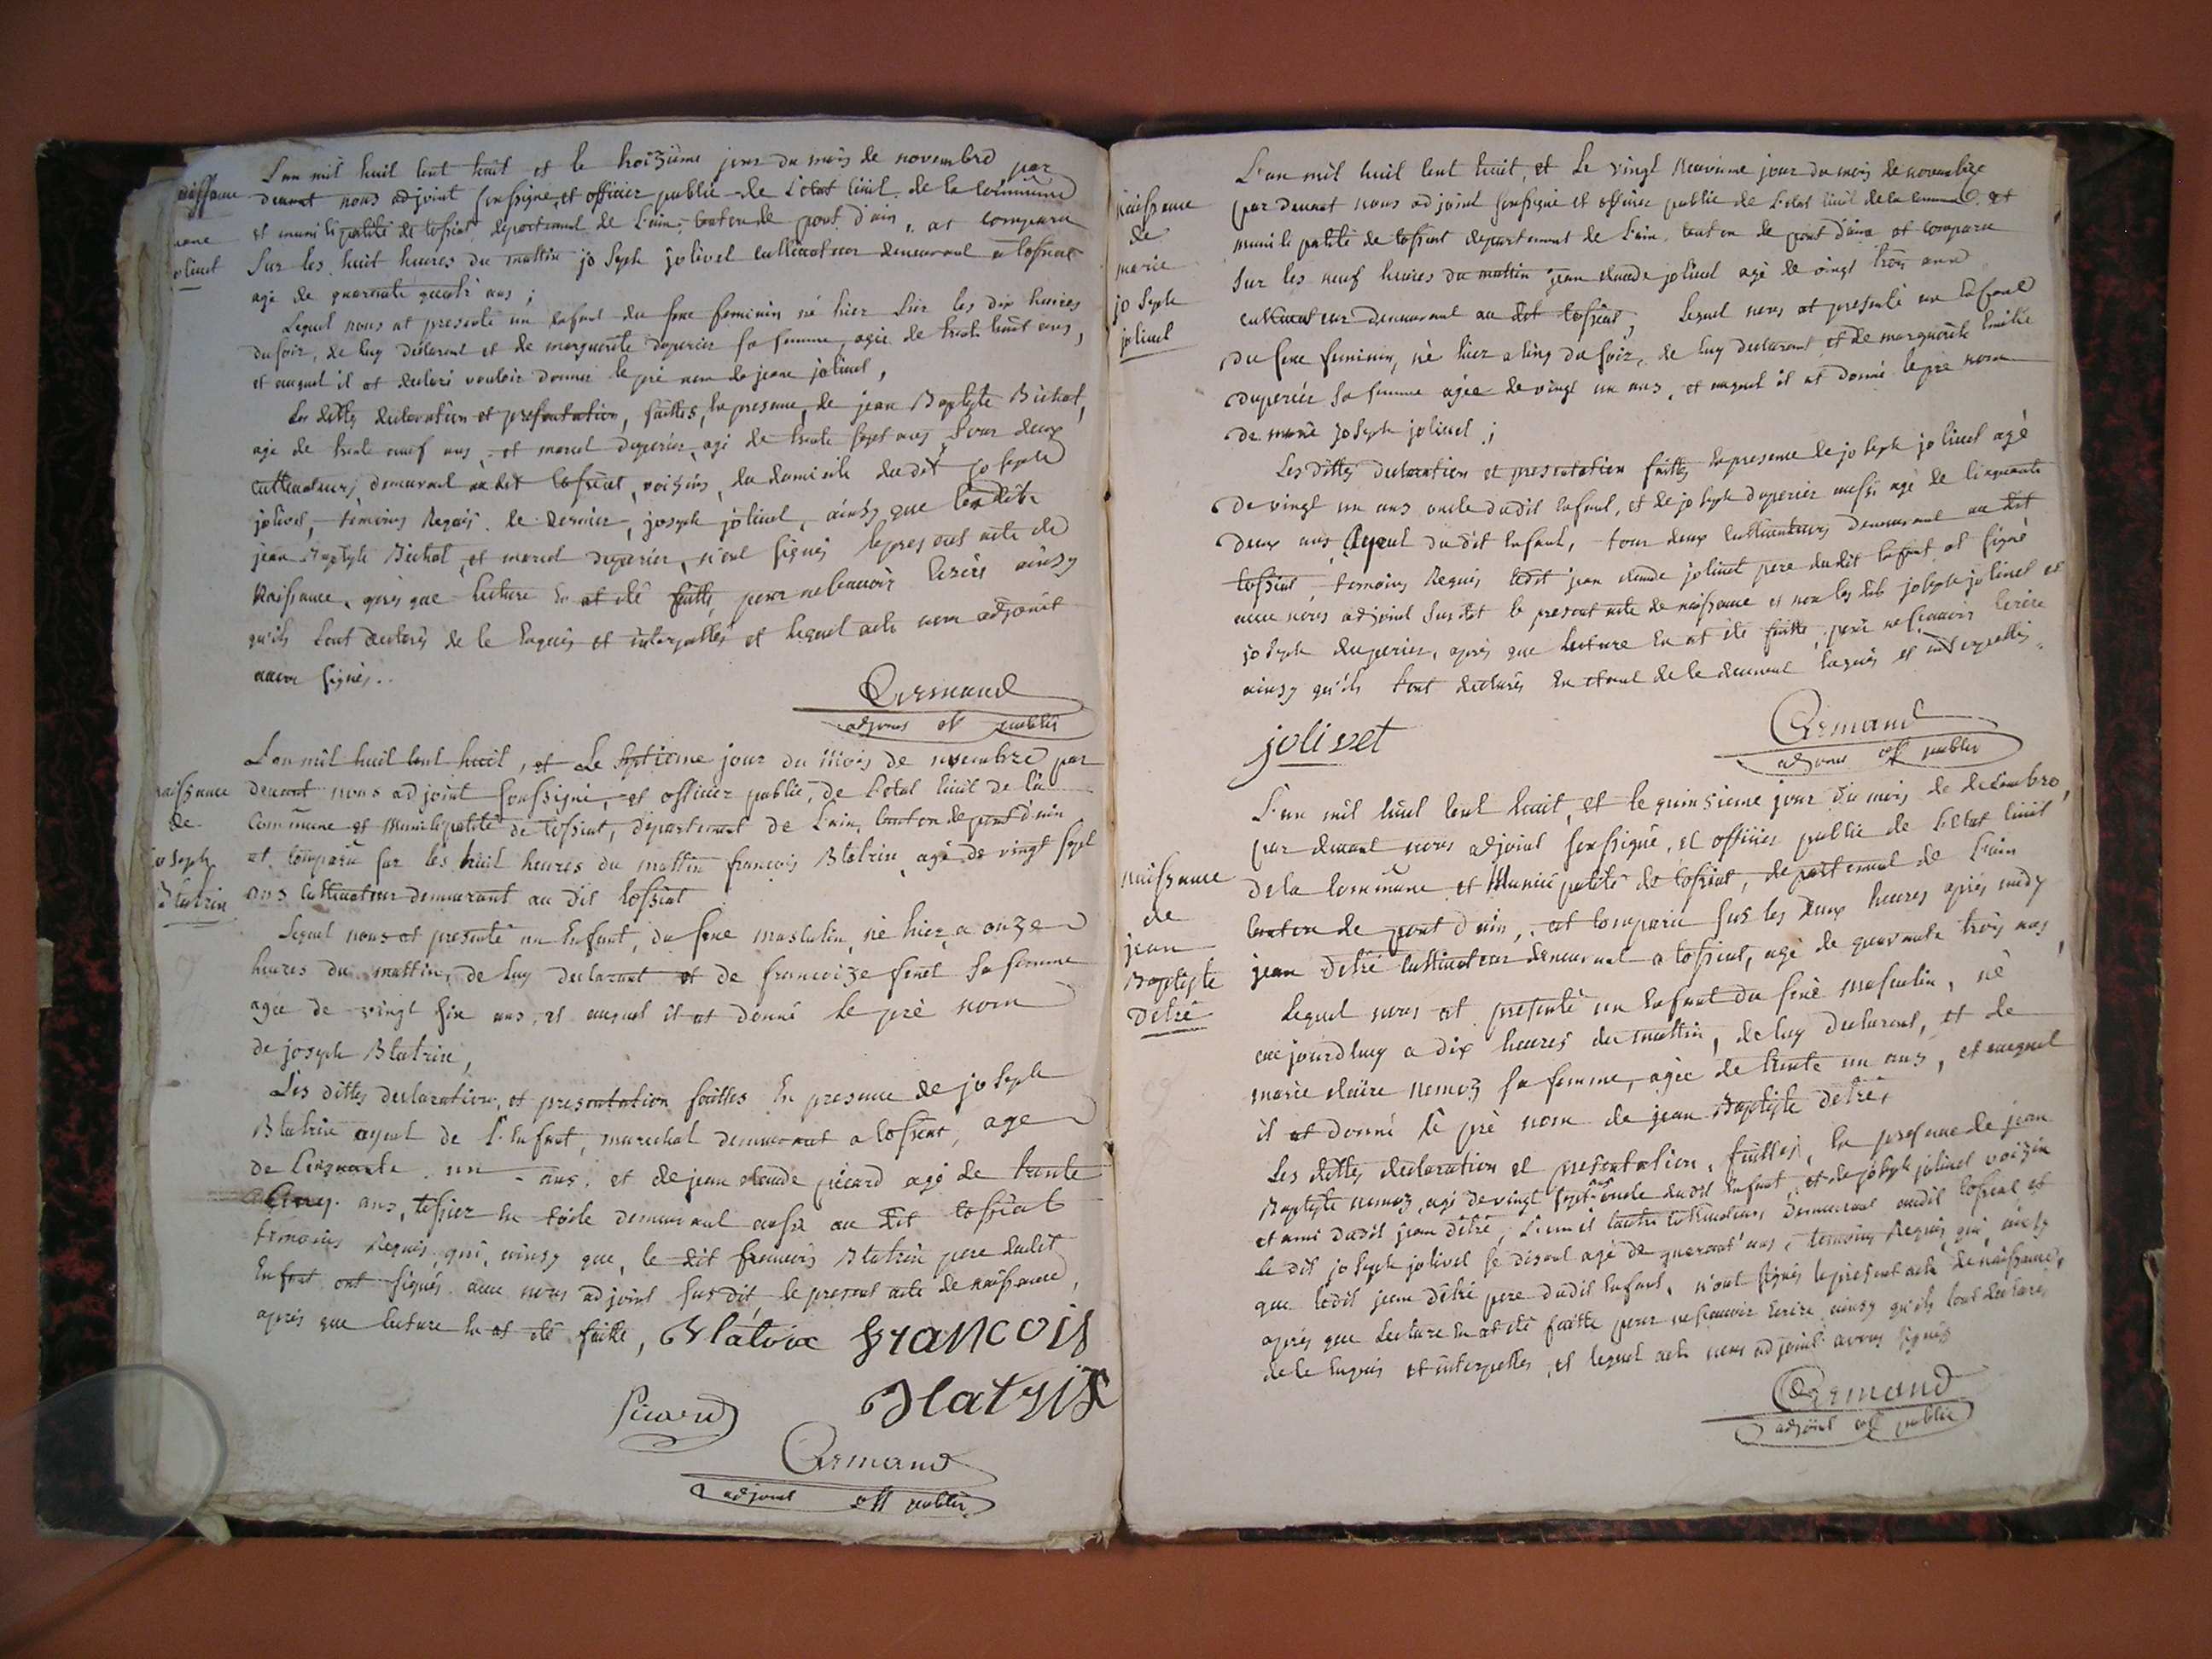 L'an mil huit cent huit et le troizième jour du mois de novembre par
naissance
devant nous adjoint soussigné, et officier public de l'etat civil de la commune
jeane
et municipalité de tossiat departement de l'ain, canton de pont d'ain, at comparu
jolivet
sur les huit heures du mattin joseph jolivet cultivateur demeurant a tossiat
agé de quarante quatre ans ;
Lequel nous at presenté un enfant du sexe feminin né hier sur les dix heures
du soir, de luy déclarant et de marguerite duperier sa femme, agée de trente huit ans,
et auquel il at declaré vouloir donner le pré nom de jeane jolivet,
Les dittes declaration et presentation, faittes, en presence, de jean Baptiste Bichat,
agé de trente neuf ans, et marcel duperier, agé de trente sept ans, tous deux
cultivateurs, demeurant au dit tossiat, voisins, du domicile dudit joseph
jolivet, témoins requis le dernier, joseph jolivet, ainsy que lesdits
jean Baptiste Bichat, et marcel duperier, n'ont signés le present acte de
Naissance, après que lecture en at été faitte, pour ne scavoir ecrire ainsy
qu'ils l'ont declarés de ce enquis et interpellés et lequel acte nous adjoint
avons signés.
Armand
adjoint off public
L'an mil huit cent huit, et Le septieme jour du mois de novembre par
naissance
devant nous adjoint soussigné, et officier public, de l'etat civil de la
de
commune et municipalité de tossiat, departement de l'ain, canton de pont d'ain
joseph
at comparu sur les huit heures du mattin francois Blatrix, agé de vingt sept
Blatrix
ans cultivateur demeurant au dit tossiat
Lequel nous at presenté un enfant, du sexe masculin, né hier, a onze
heures du mattin, de luy declarant et de francoize feret sa femme
agée de vingt six ans, et auquel il at donné le pré nom
de joseph Blatrix,
Les dittes declaration, et presentation faittes en presence de joseph
Blatrix ayeul de l'enfant, marechal demeurant a tossiat, agé
de cinquante un ans, et de jean claude picard agé de trente
cinq ans, tissier en toile demeurant aussi au dit tossiat
temoins requis, qui, ainsy que, le dit francois Blatrix pere dudit
enfant ont signés avec nous adjoint susdit, le present acte de naissance,
après que lecture en at été faitte, Blatrix francois
Blatrix
Picard
Armand
adjoint off public
L'an mil huit cent huit, et Le vingt neuvieme jour du mois de novembre
naissance
par devant nous adjoint soussigné et officier public de l'etat civil de la commune et
de
municipalité de tossiat departement de l'ain, canton de pont d'ain at comparu
marie
sur les neuf heures du mattin jean claude jolivet agé de vingt trois ans
joseph
cultivateur demeurant au dit tossiat, Lequel nous at presenté un enfant
jolivet
du sexe feminin, né hier a cinq du soir, de luy declarant et de marguerite
duperier sa femme agée de vingt un ans, et auquel il at donné le pré nom
de marie joseph jolivet ;
Les dittes declaration et presentation faittes en presence de joseph jolivet agé
de vingt un ans oncle dudit enfant, et de joseph duperier aussi agé de cinquante
deux ans, ayeul dudit enfant, tous deux cultivateurs demeurant au dit
tossiat, temoins requis ledit jean claude jolivet pere dudit enfant at signé
avec nous adjoint susdit le present acte de naissance et non les dits joseph jolivet et
joseph duperier, après que lecture en at été faitte, pour ne scavoir ecrire
ainsy qu'ils l'ont declarés en etant de ce dument enquis et interpellés.
jolivet
Armand
adjoint off public
L'an mil huit cent huit, et le quinsieme jour du mois de decembre,
par devant nous adjoint soussigné, et officier public de l'etat civil
naissance
de la commune et Municipalité de tossiat, departement de l'ain
de
canton de pont d'ain, at comparu sur les deux heures après midy
jean
jean détré cultivateur demeurant a tossiat, agé de quarante trois ans,
Baptiste
Détré
Lequel nous at presenté un enfant du sexe masculin, né
aujourdhuy a dix heures du mattin, de luy declarant, et de
marie claire nemoz sa femme, agée de trente un ans, et auquel
il at donné le pré nom de jean Baptiste détré,
Les dittes declaration et presentation, faittes, en presence de jean
Baptiste nemoz, agé de vingt sept ans oncle dudit enfant, et de joseph jolivet voizin
et ami dudit jean détré, l'un et l'autre cultivateurs demeurant audit tossiat et
le dit joseph jolivet se disant agé de quarant' ans, temoins requis, qui, ainsy
que ledit jean détré pere dudit enfant, n'ont signés le present acte de naissance,
après que lecture en at été faitte pour ne scavoir ecrire ainsy qu'ils l'ont declarés
de ce enquis et interpellés, et lequel acte nous adjoint avons signés
Armand
adjoint off public